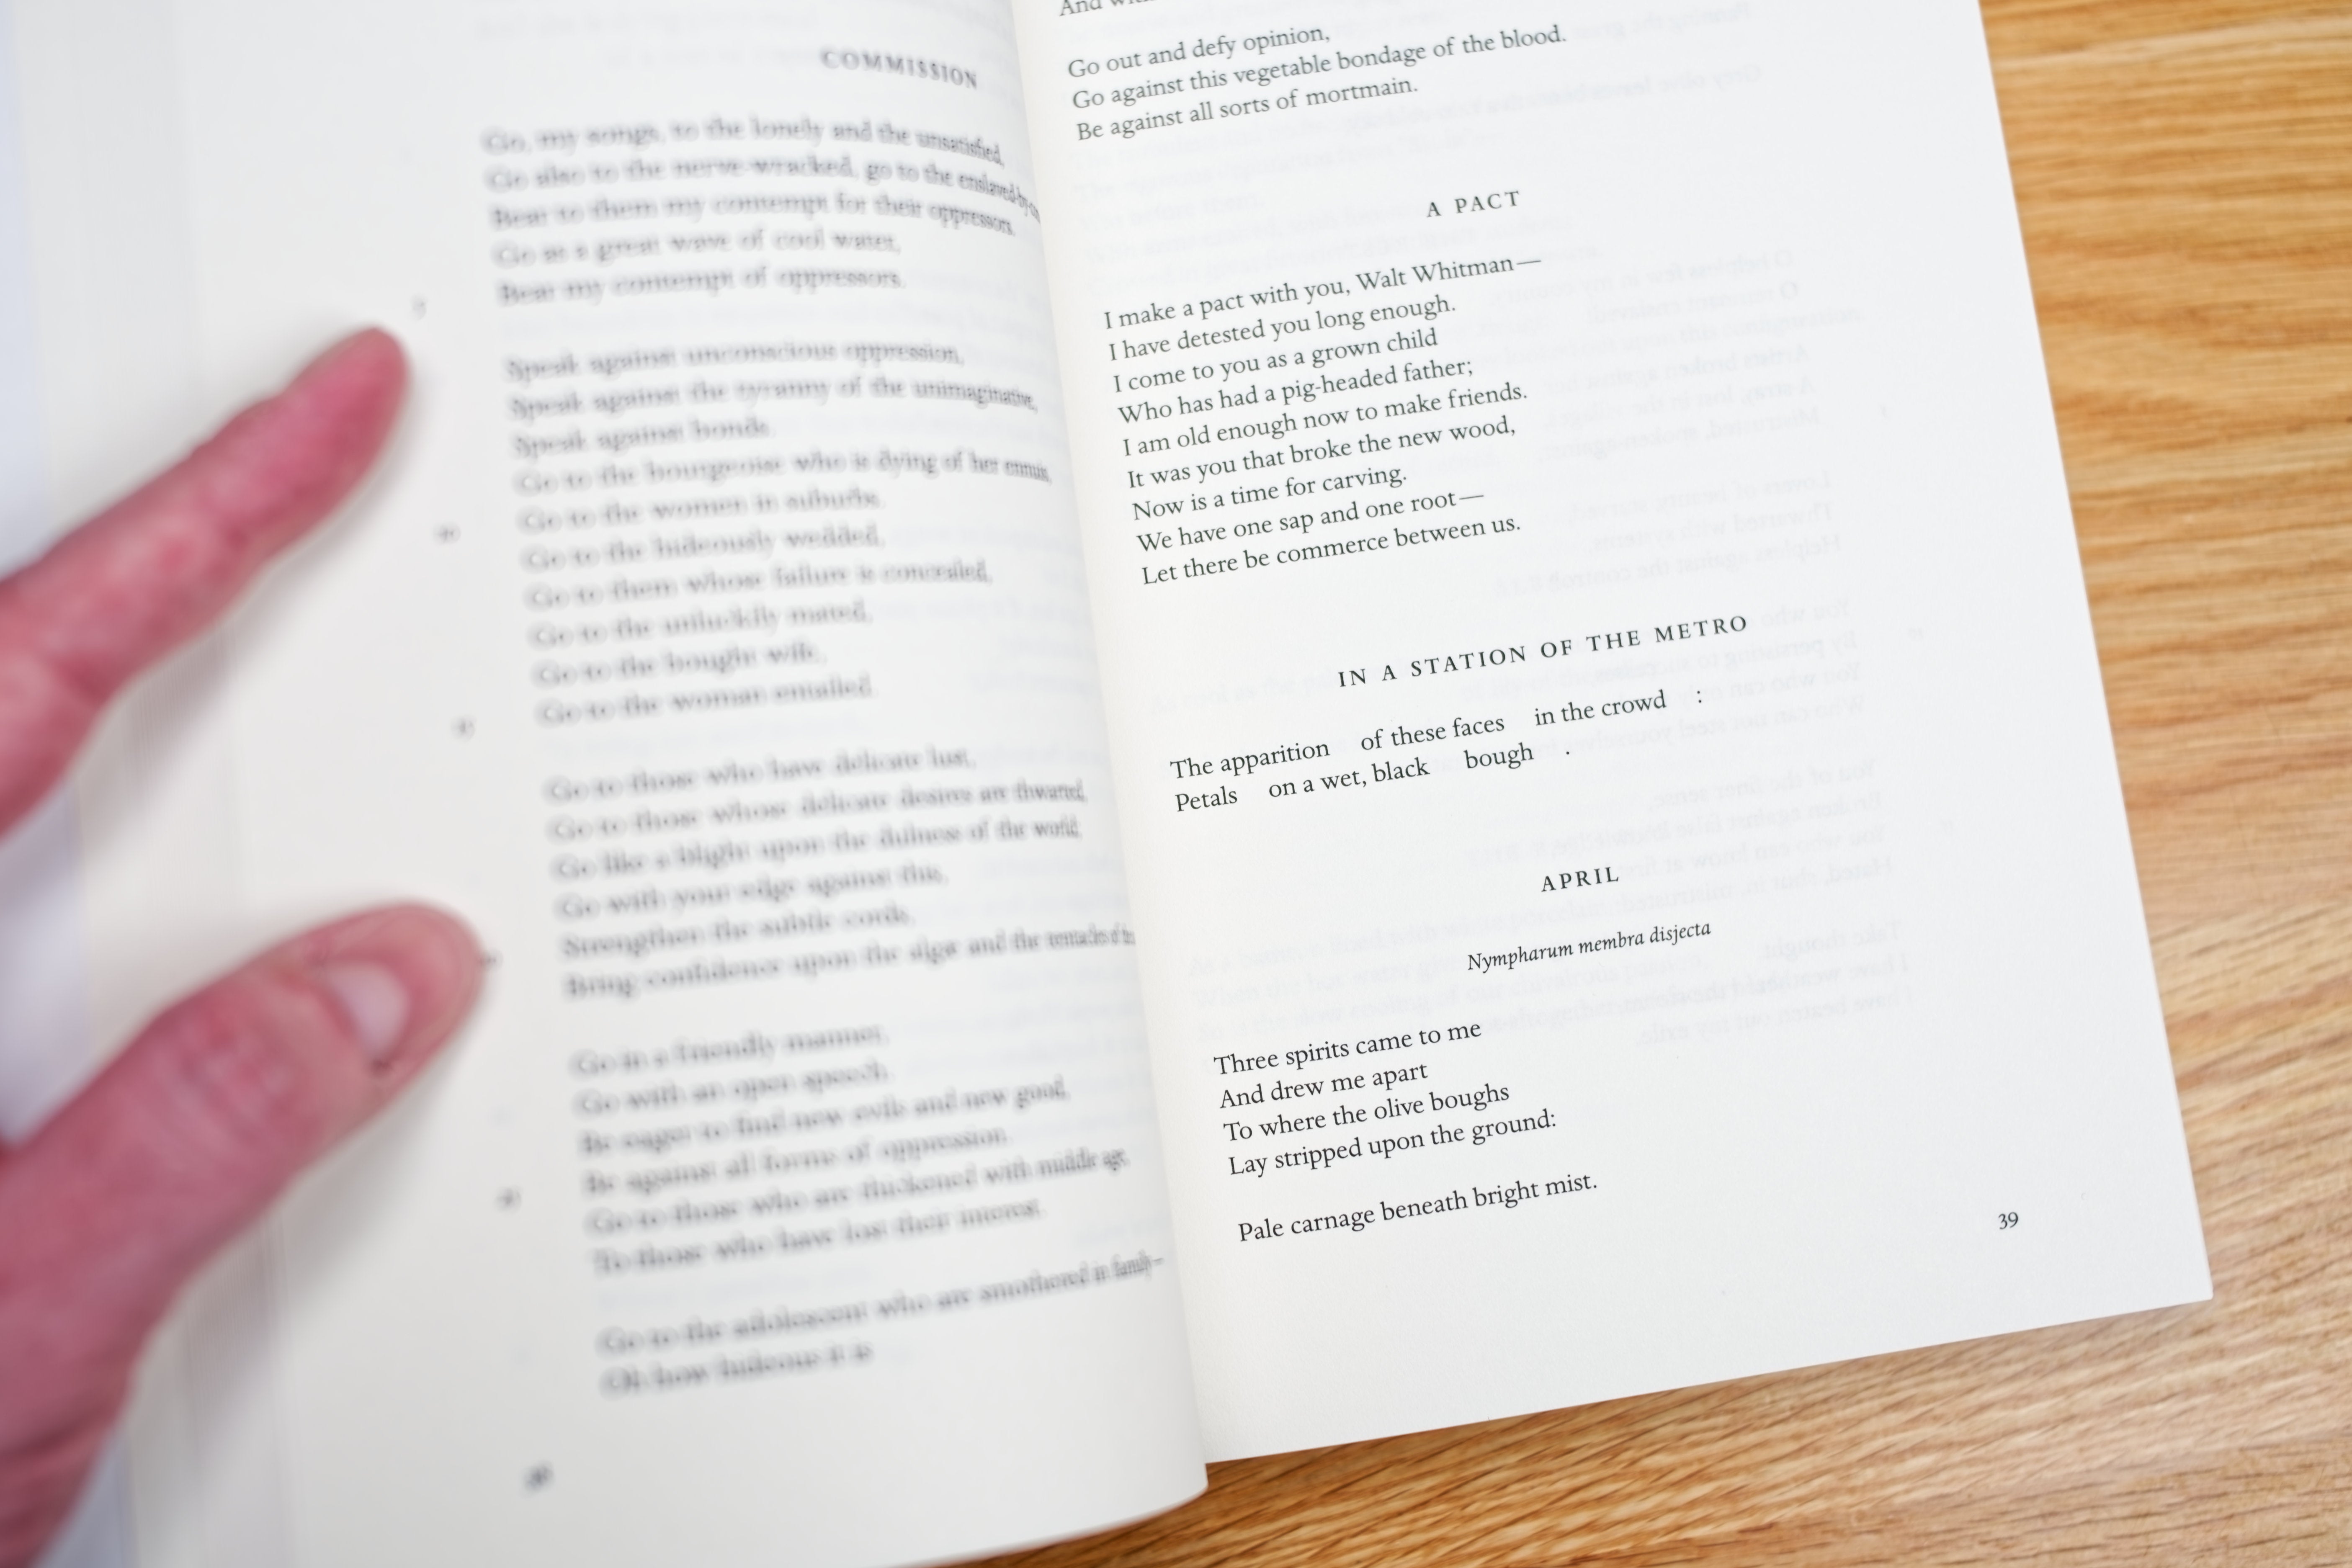 COMMISSION
Go, my songs, to the lonely and the unsatisfied,
Go also to the nerve-wracked, go to the enslaved-by-
Bear to them my contempt for their oppressors.
Go as a great wave of cool water,
Bear my contempt of oppressors.
Speak against unconscious oppression,
Speak against the tyranny of the unimaginative,
Speak against bonds.
Go to the bourgeoise who is dying of her ennuis,
Go to the women in suburbs.
Go to the hideously wedded,
Go to them whose failure is concealed,
Go to the unluckily mated,
Go to the bought wife,
Go to the woman entailed.
Go to those who have delicate lust,
Go to those whose delicate desires are thwarted,
Go like a blight upon the dulness of the world;
Go with your edge against this,
Strengthen the subtle cords,
Bring confidence upon the algæ and the tentacles of
Go in a friendly manner,
Go with an open speech.
Be eager to find new evils and new good,
Be against all forms of oppression.
Go to those who are thickened with middle age,
To those who have lost their interest.
Go to the adolescent who are smothered in family—
Oh how hideous it is
And
Go out and defy opinion,
Go against this vegetable bondage of the blood.
Be against all sorts of mortmain.
A PACT
I make a pact with you, Walt Whitman—
I have detested you long enough.
I come to you as a grown child
Who has had a pig-headed father;
I am old enough now to make friends.
It was you that broke the new wood,
Now is a time for carving.
We have one sap and one root—
Let there be commerce between us.
IN A STATION OF THE METRO
The apparition of these faces in the crowd :
Petals on a wet, black bough .
APRIL
Nympharum membra disjecta
Three spirits came to me
And drew me apart
To where the olive boughs
Lay stripped upon the ground:
Pale carnage beneath bright mist.
39